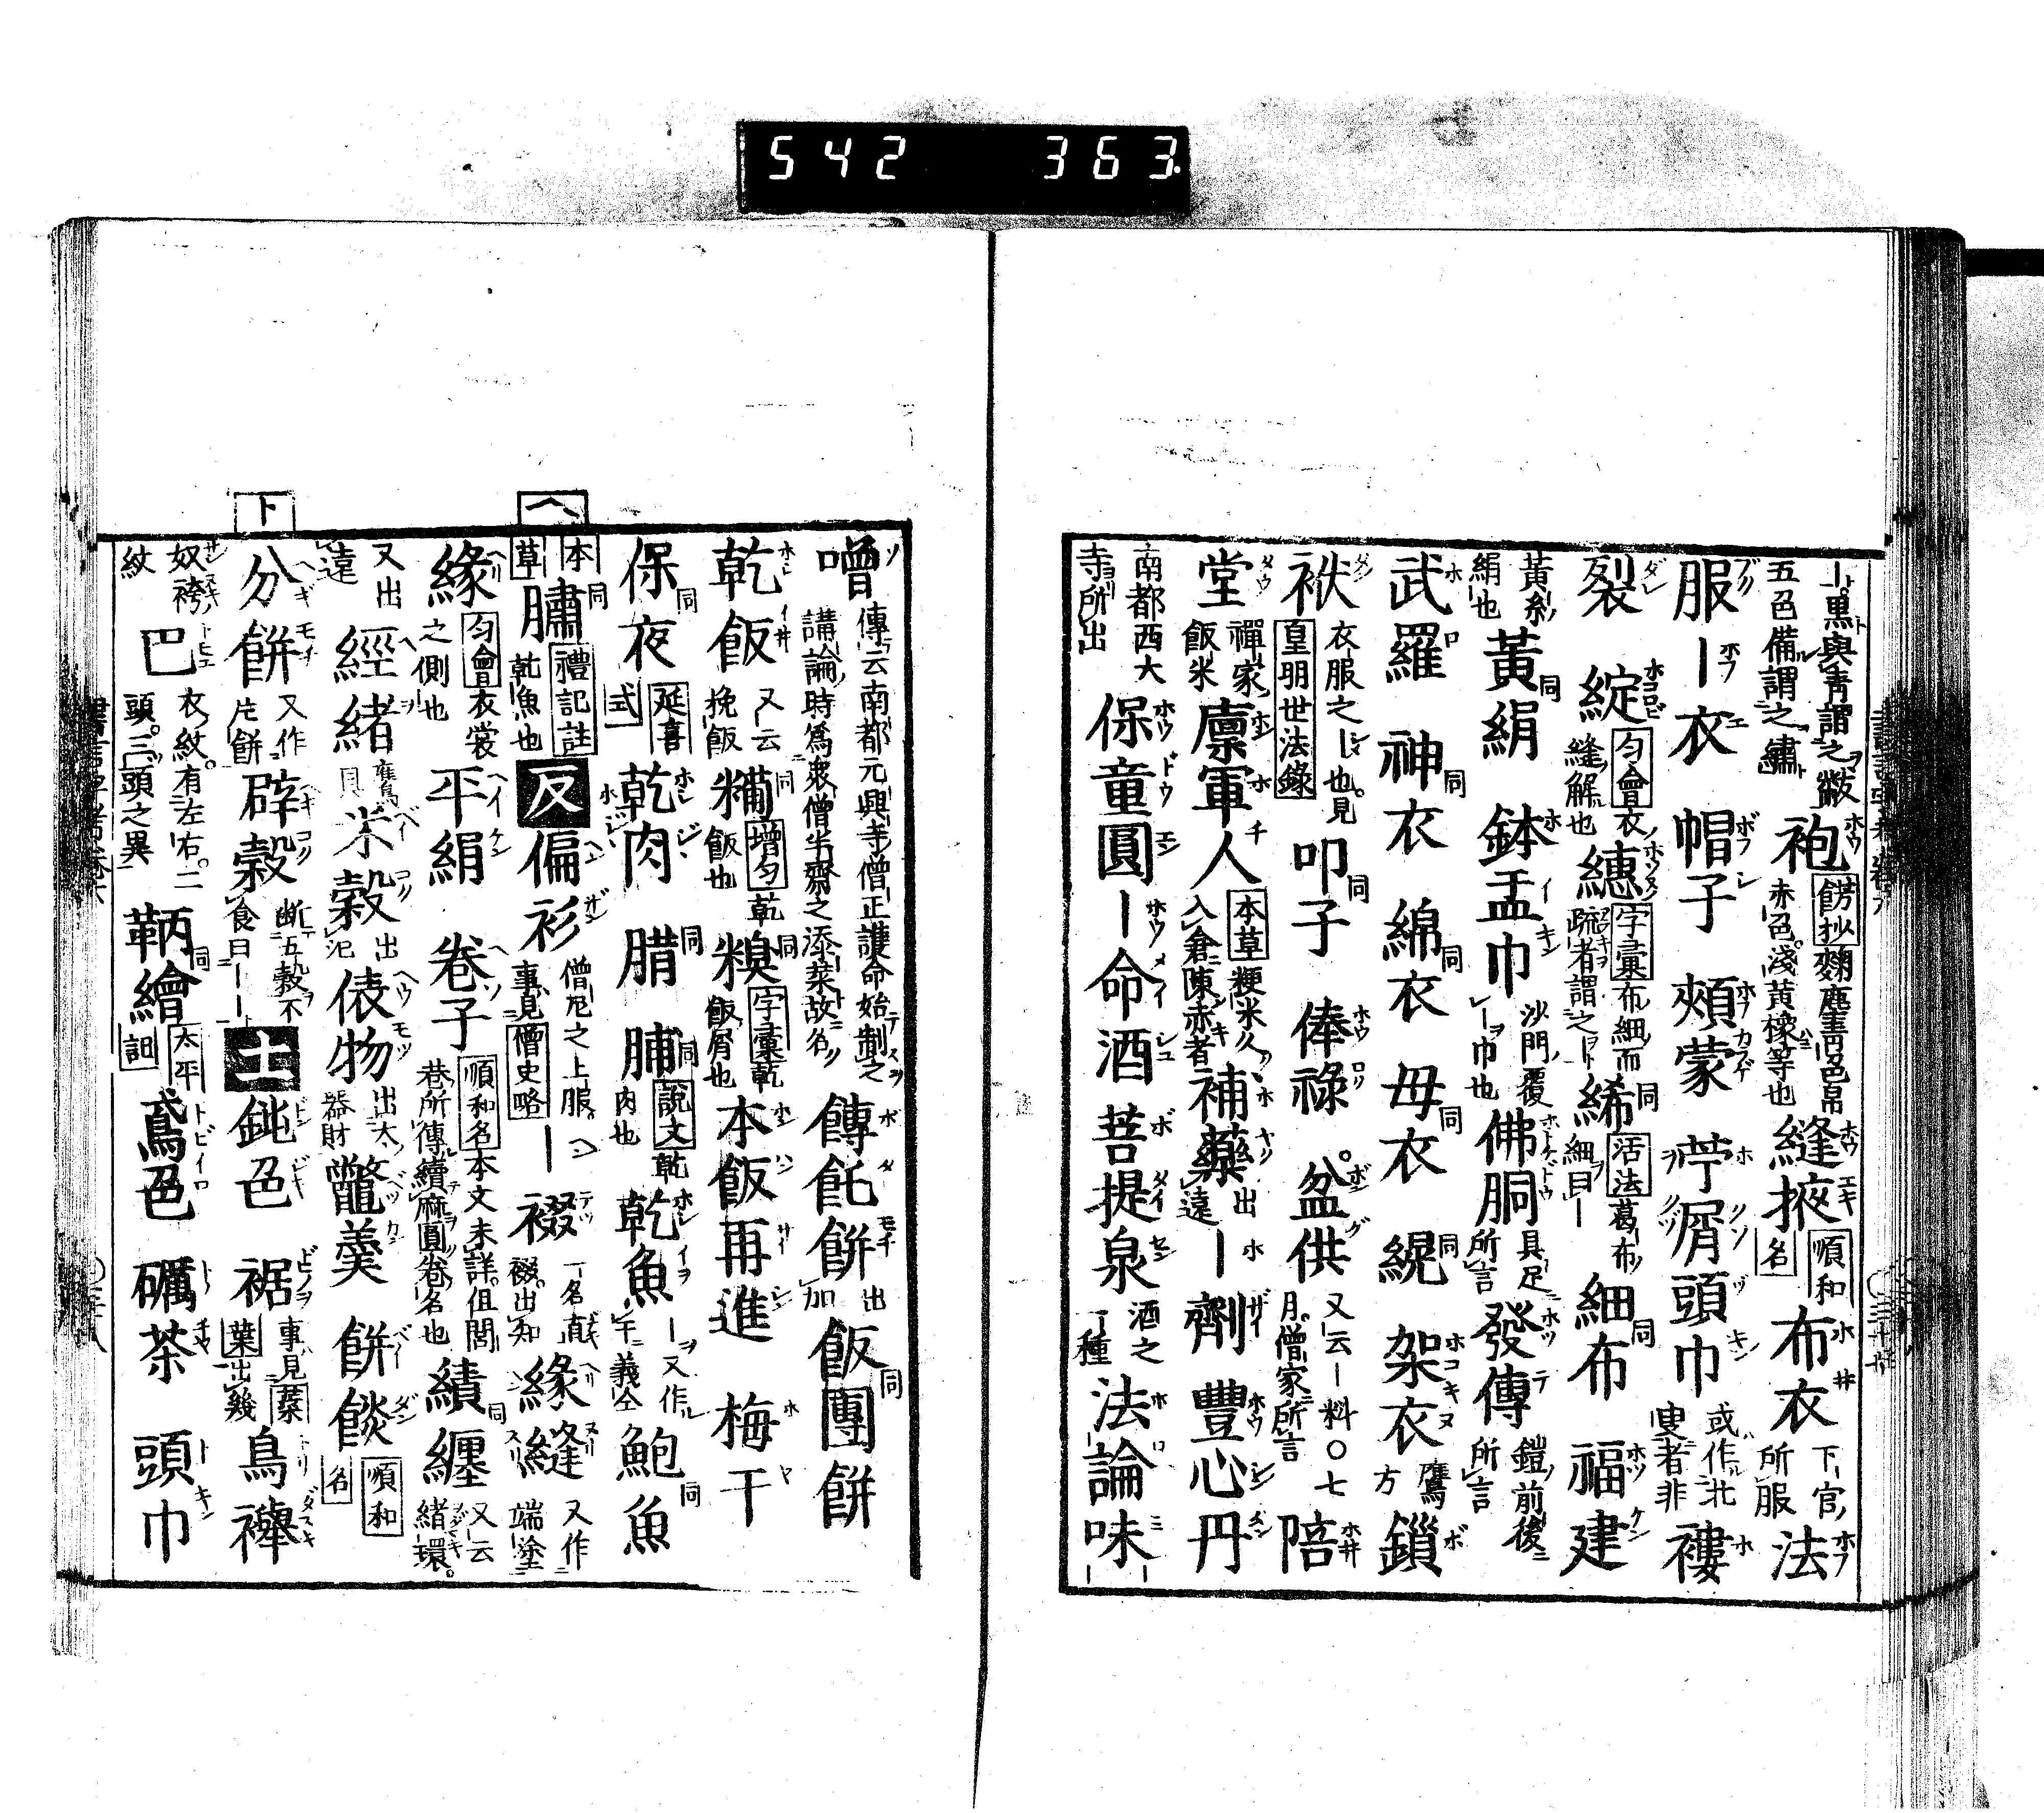 542 363.
ー黒與青謂之黻
五色備謂之繡
袍
餝抄
麹塵青色帛
赤色淺黄橡等也
縫掖
順和
名
布衣
下官
所服
法
服ー衣 帽子 頰蒙 苧屑頭巾
或作北
叟者非
褸
裂 綻
匀會
衣
縫解也
繐
字彙
布細而
疏者謂之ー
絺
活法
葛布
細曰ー
細布 福建
黄糸
絹也
黄絹 鉢盂巾
沙門覆
ー巾也
佛胴
具足
所言
發傳
鎧前後
所言
武羅 神衣 綿衣 母衣 縨 架衣
鷹
方
鎖
袱
衣服之ー也見
皇明世法錄
叩子 俸祿 盆供
又云ー料〇七
月僧家所言
陪
堂
禪家
飯米
廩軍人
本草
粳米久
入倉陳赤者
補藥
出
遠
ー劑 豐心丹
南都西大
寺所出
保童圓 ー命酒 菩提泉
酒之
一種
法論味
噌
傳云南都元興寺僧正護命始制之
講論時爲衆僧半齋之添菜故名
餺飥餅
出
加
飯團餅
乾飯
又云
挽飯
糒
增匀
乾
飯也
糗
字彙
乾
飯屑也
本飯再進 梅干
保夜
延喜
式
乾肉 腊 脯
說文
乾
肉也
乾魚
ー又作
午義仝
鮑魚
本
草
鱐
禮記註
乾魚也
ヘ
反
偏衫
僧尼之上服
事見僧史略
ー裰
一名直
裰出知
緣縫
又作
端塗
緣
匀會
衣裳
之側也
平絹 卷子
順和名
本文未詳但閭
巷所傳續麻圓卷名也
績纏
又云
緖環
又出
遠
經緖
鷹
具
米榖
出
氾
俵物
出太
器財
鼈羹 餅餤
順和
名
分餅
又作
片餅
辟榖
断五穀不
食曰ーー
ト
土
鈍色 裾
事見蘂
葉出幾
鳥襷
奴袴
紋
巴
衣紋有左右二
頭三頭之異
鞆繪
太平
記
鳶色 礪茶 頭巾